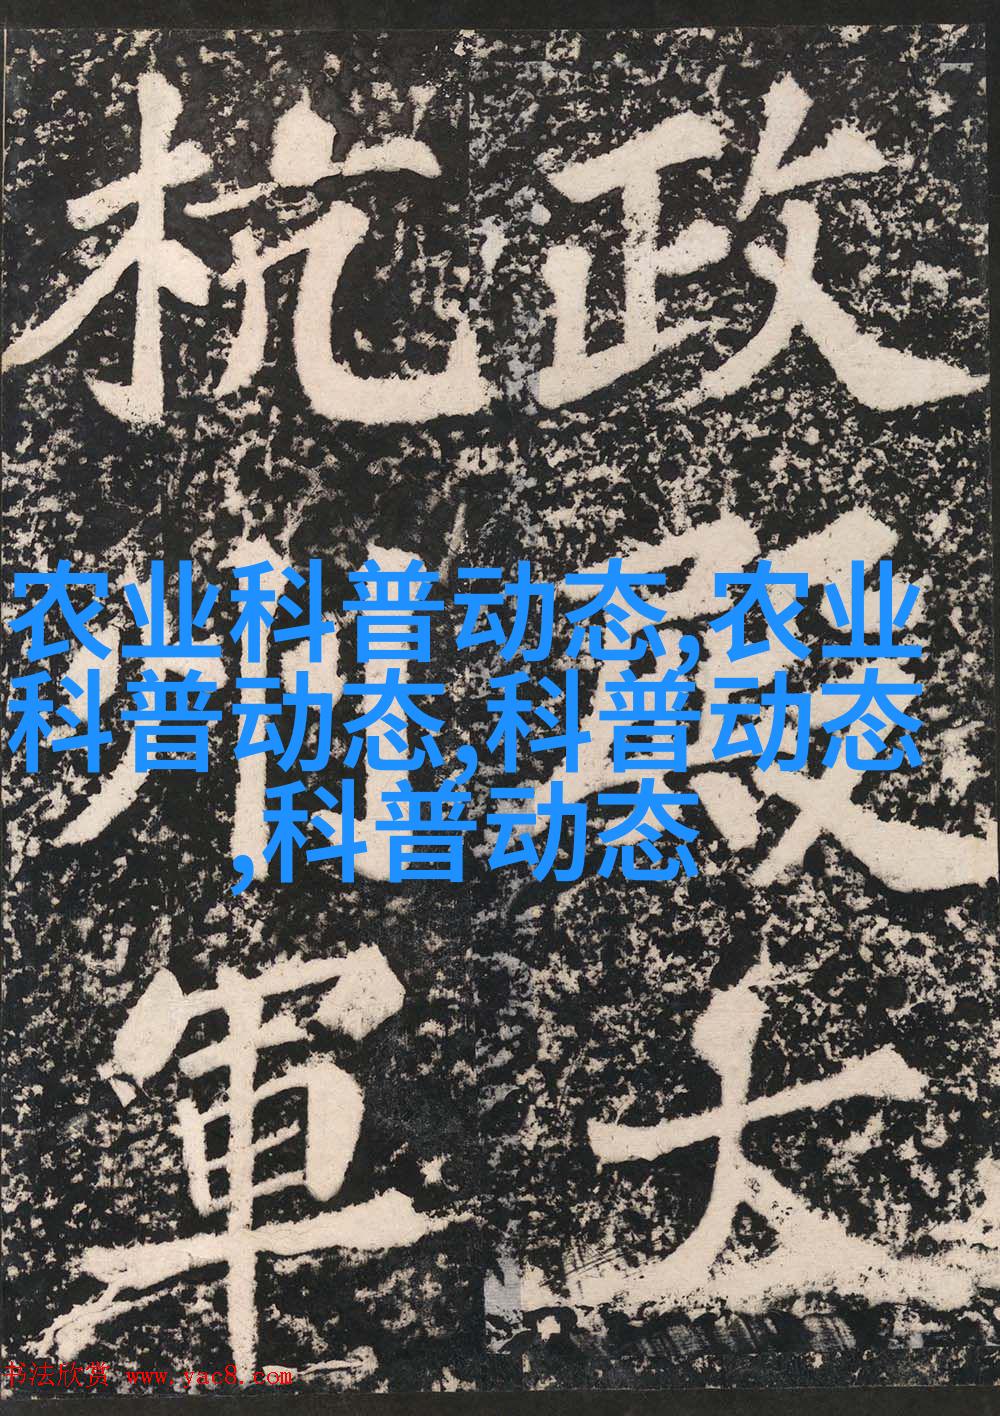 政最大
杭州軍
农业科普动态,农业
科普动态,科普动态
,科普动态
书法欣赏 www.yac8.com